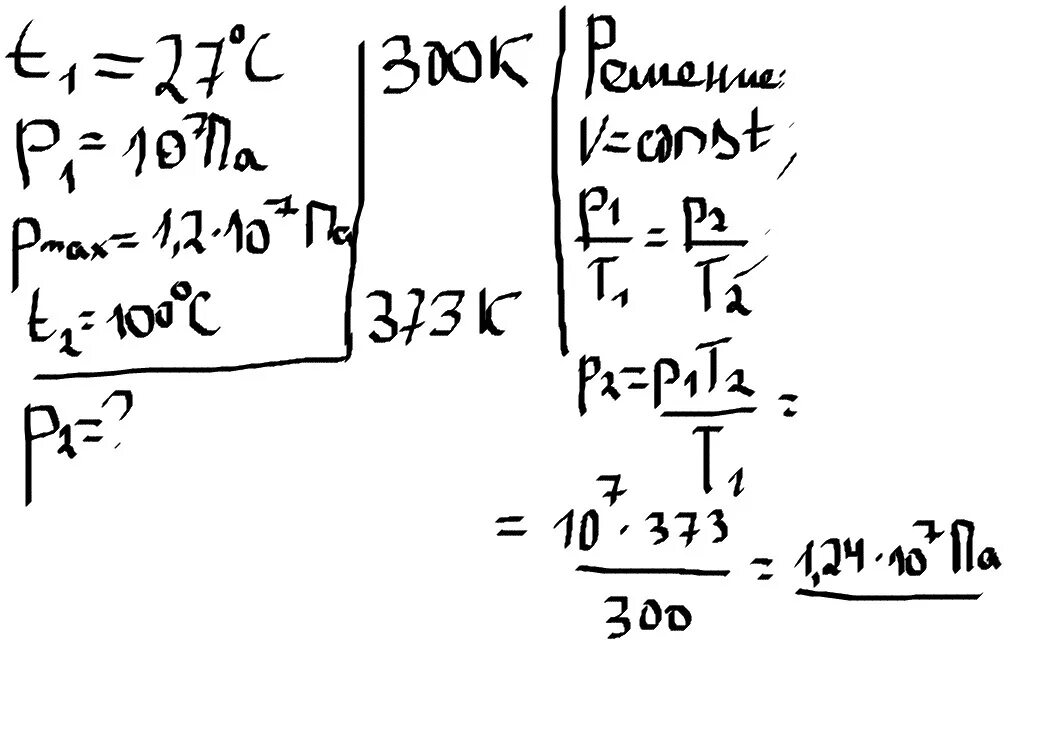 t₁ = 27°C
p₁ = 10⁷ Па
pmax = 1,2·10⁷ Па
t₂ = 100°C
p₂ = ?
300K
373K
Решение:
V = const,
p₁/T₁ = p₂/T₂
p₂ = p₁T₂/T₁ =
= 10⁷·373/300 = 1,24·10⁷ Па